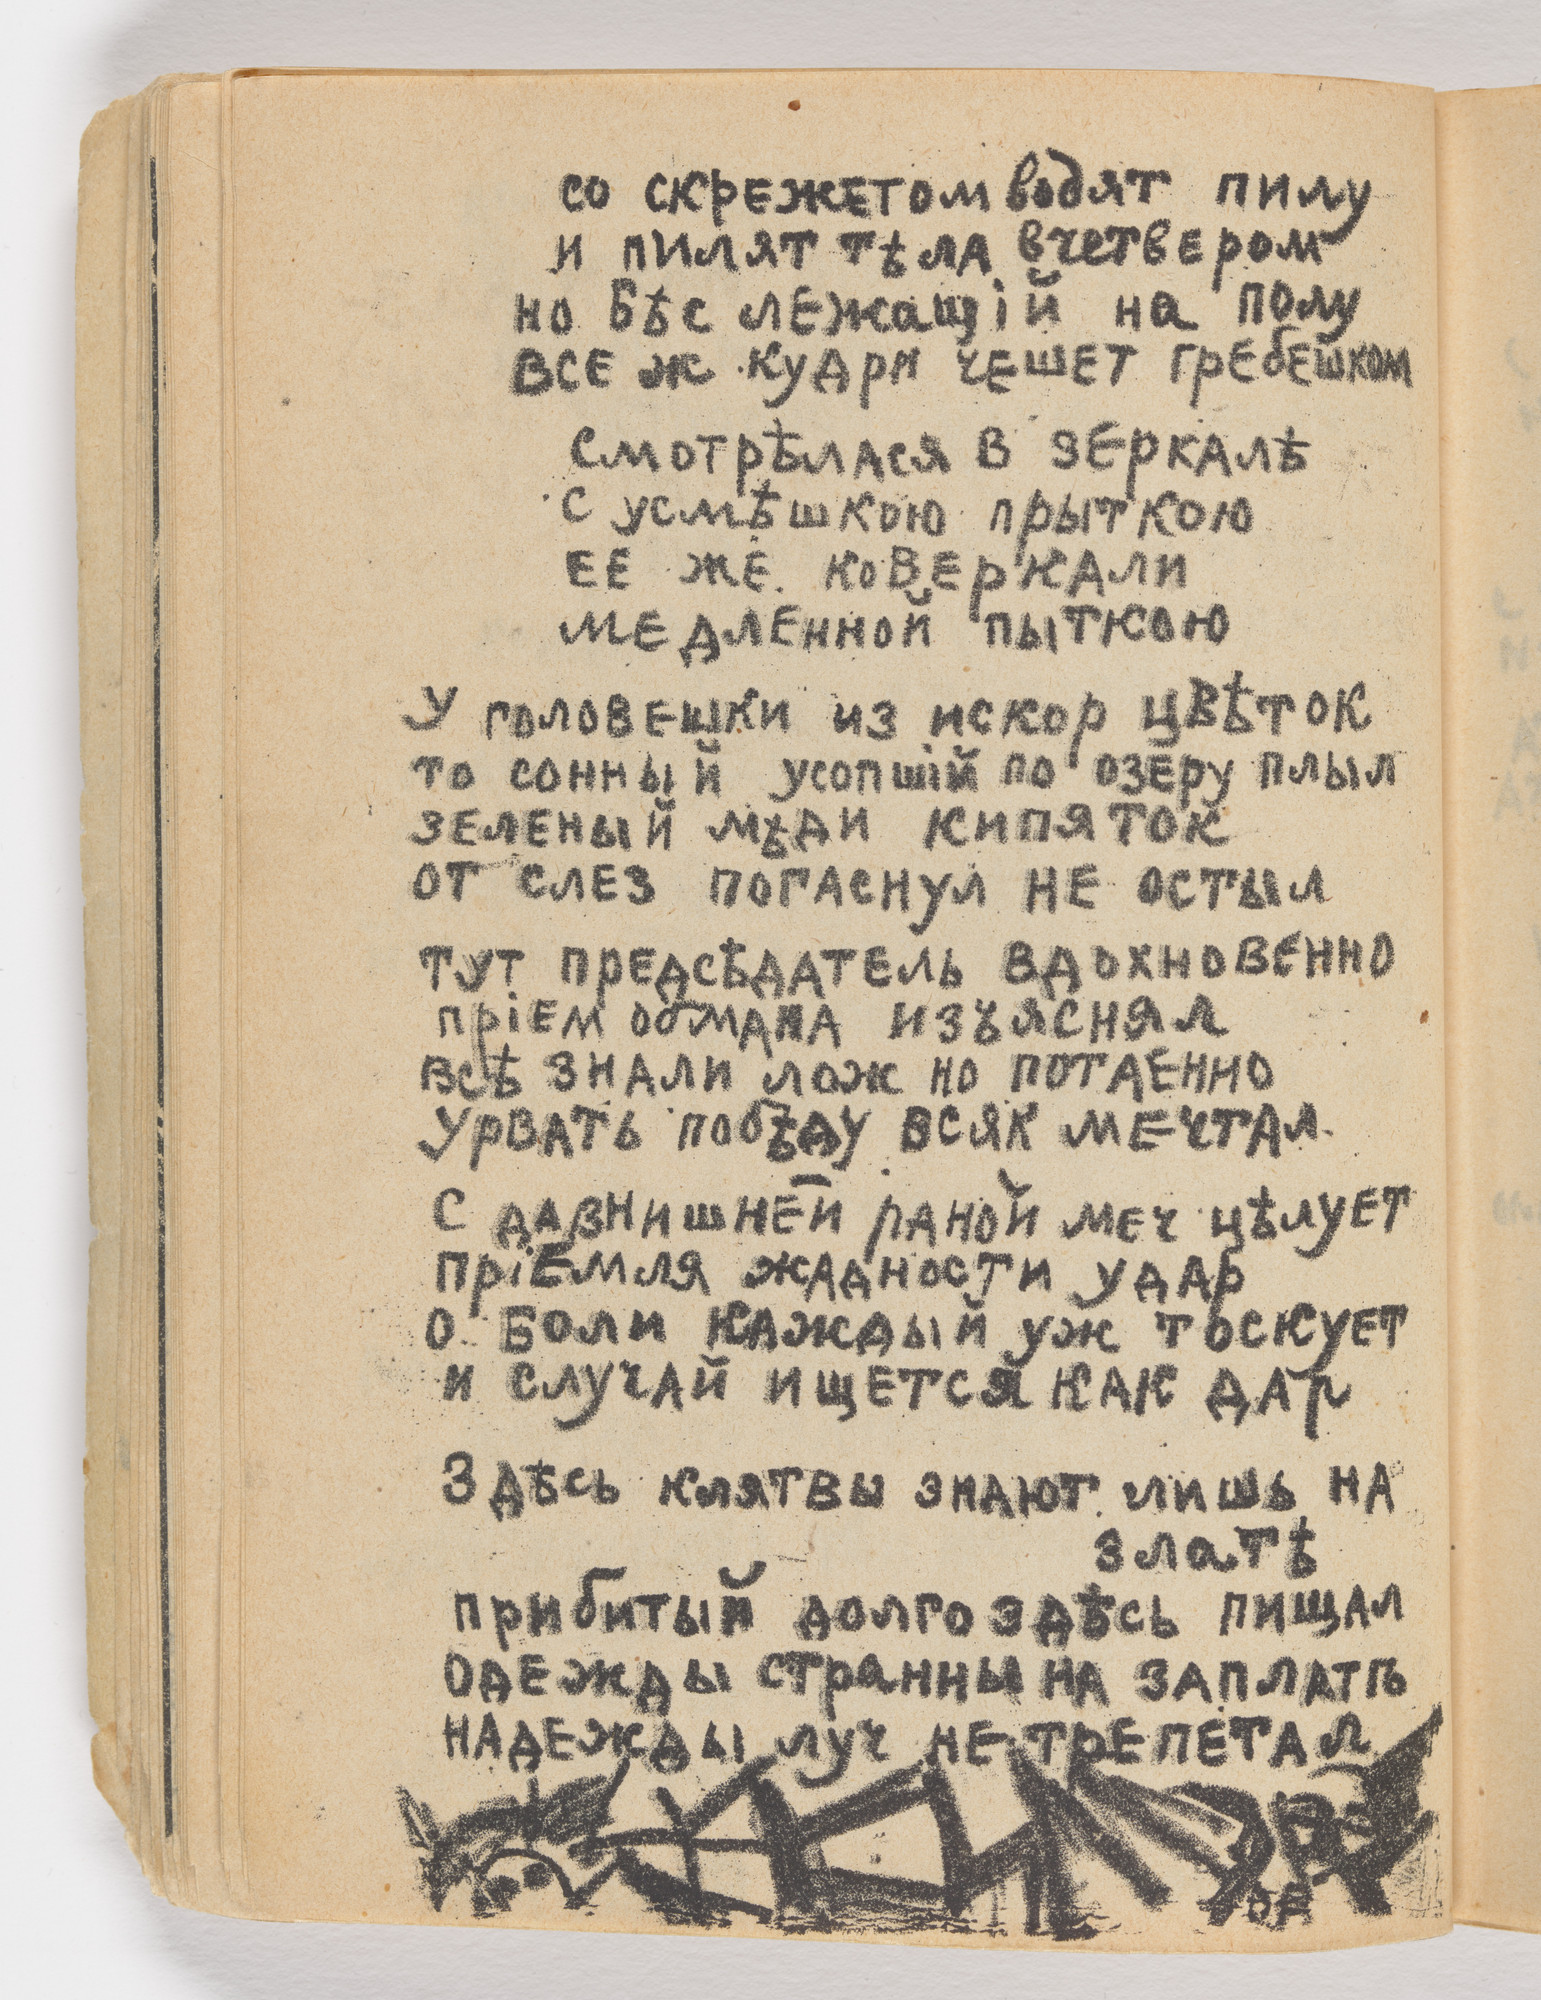 со скрежетом водят пилу
и пилят тѣла вчетвером
но бѣс лежащій на полу
все ж кудри чешет гребешком
смотрѣлася в зеркалѣ
с усмѣшкою прыткою
ее же коверкали
медленной пыткою
У головешки из искор цвѣток
то сонный усопшій по озеру плыл
зеленый мѣди кипяток
от слез погаснул не остыл
тут предсѣдатель вдохновенно
пріем обмана изъяснял
всѣ знали лож но потаенно
урвать побѣду всяк мечтал
С давнишней раной меч цѣлует
пріемля жадности удар
о боли каждый уж тоскует
и случай ищется как дар
Здѣсь клятвы знают лишь на
златѣ
прибитый долго здѣсь пищал
одежды странны на заплатѣ
надежды луч не трепетал